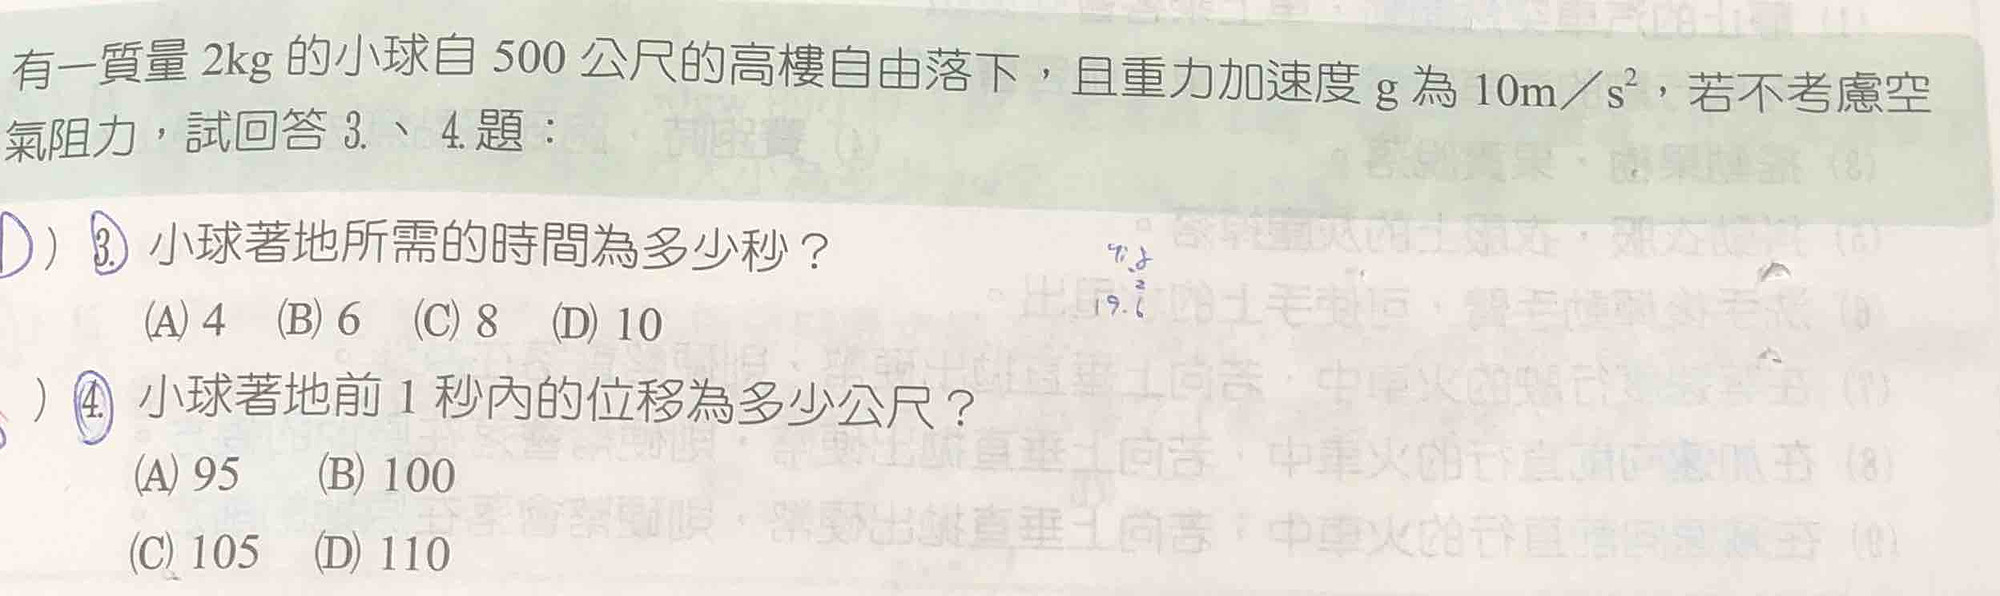 有一質量 2kg 的小球自 500 公尺的高樓自由落下，且重力加速度 g 為 10m／s²，若不考慮空
氣阻力，試回答 3.、4.題：
D ) 3. 小球著地所需的時間為多少秒？
(A) 4 (B) 6 (C) 8 (D) 10
) 4. 小球著地前 1 秒內的位移為多少公尺？
(A) 95 (B) 100
(C) 105 (D) 110
9.8
2
19.6